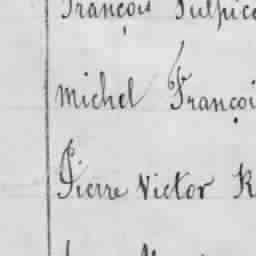 François Sulpice
Michel Françoi
Pierre Victor R